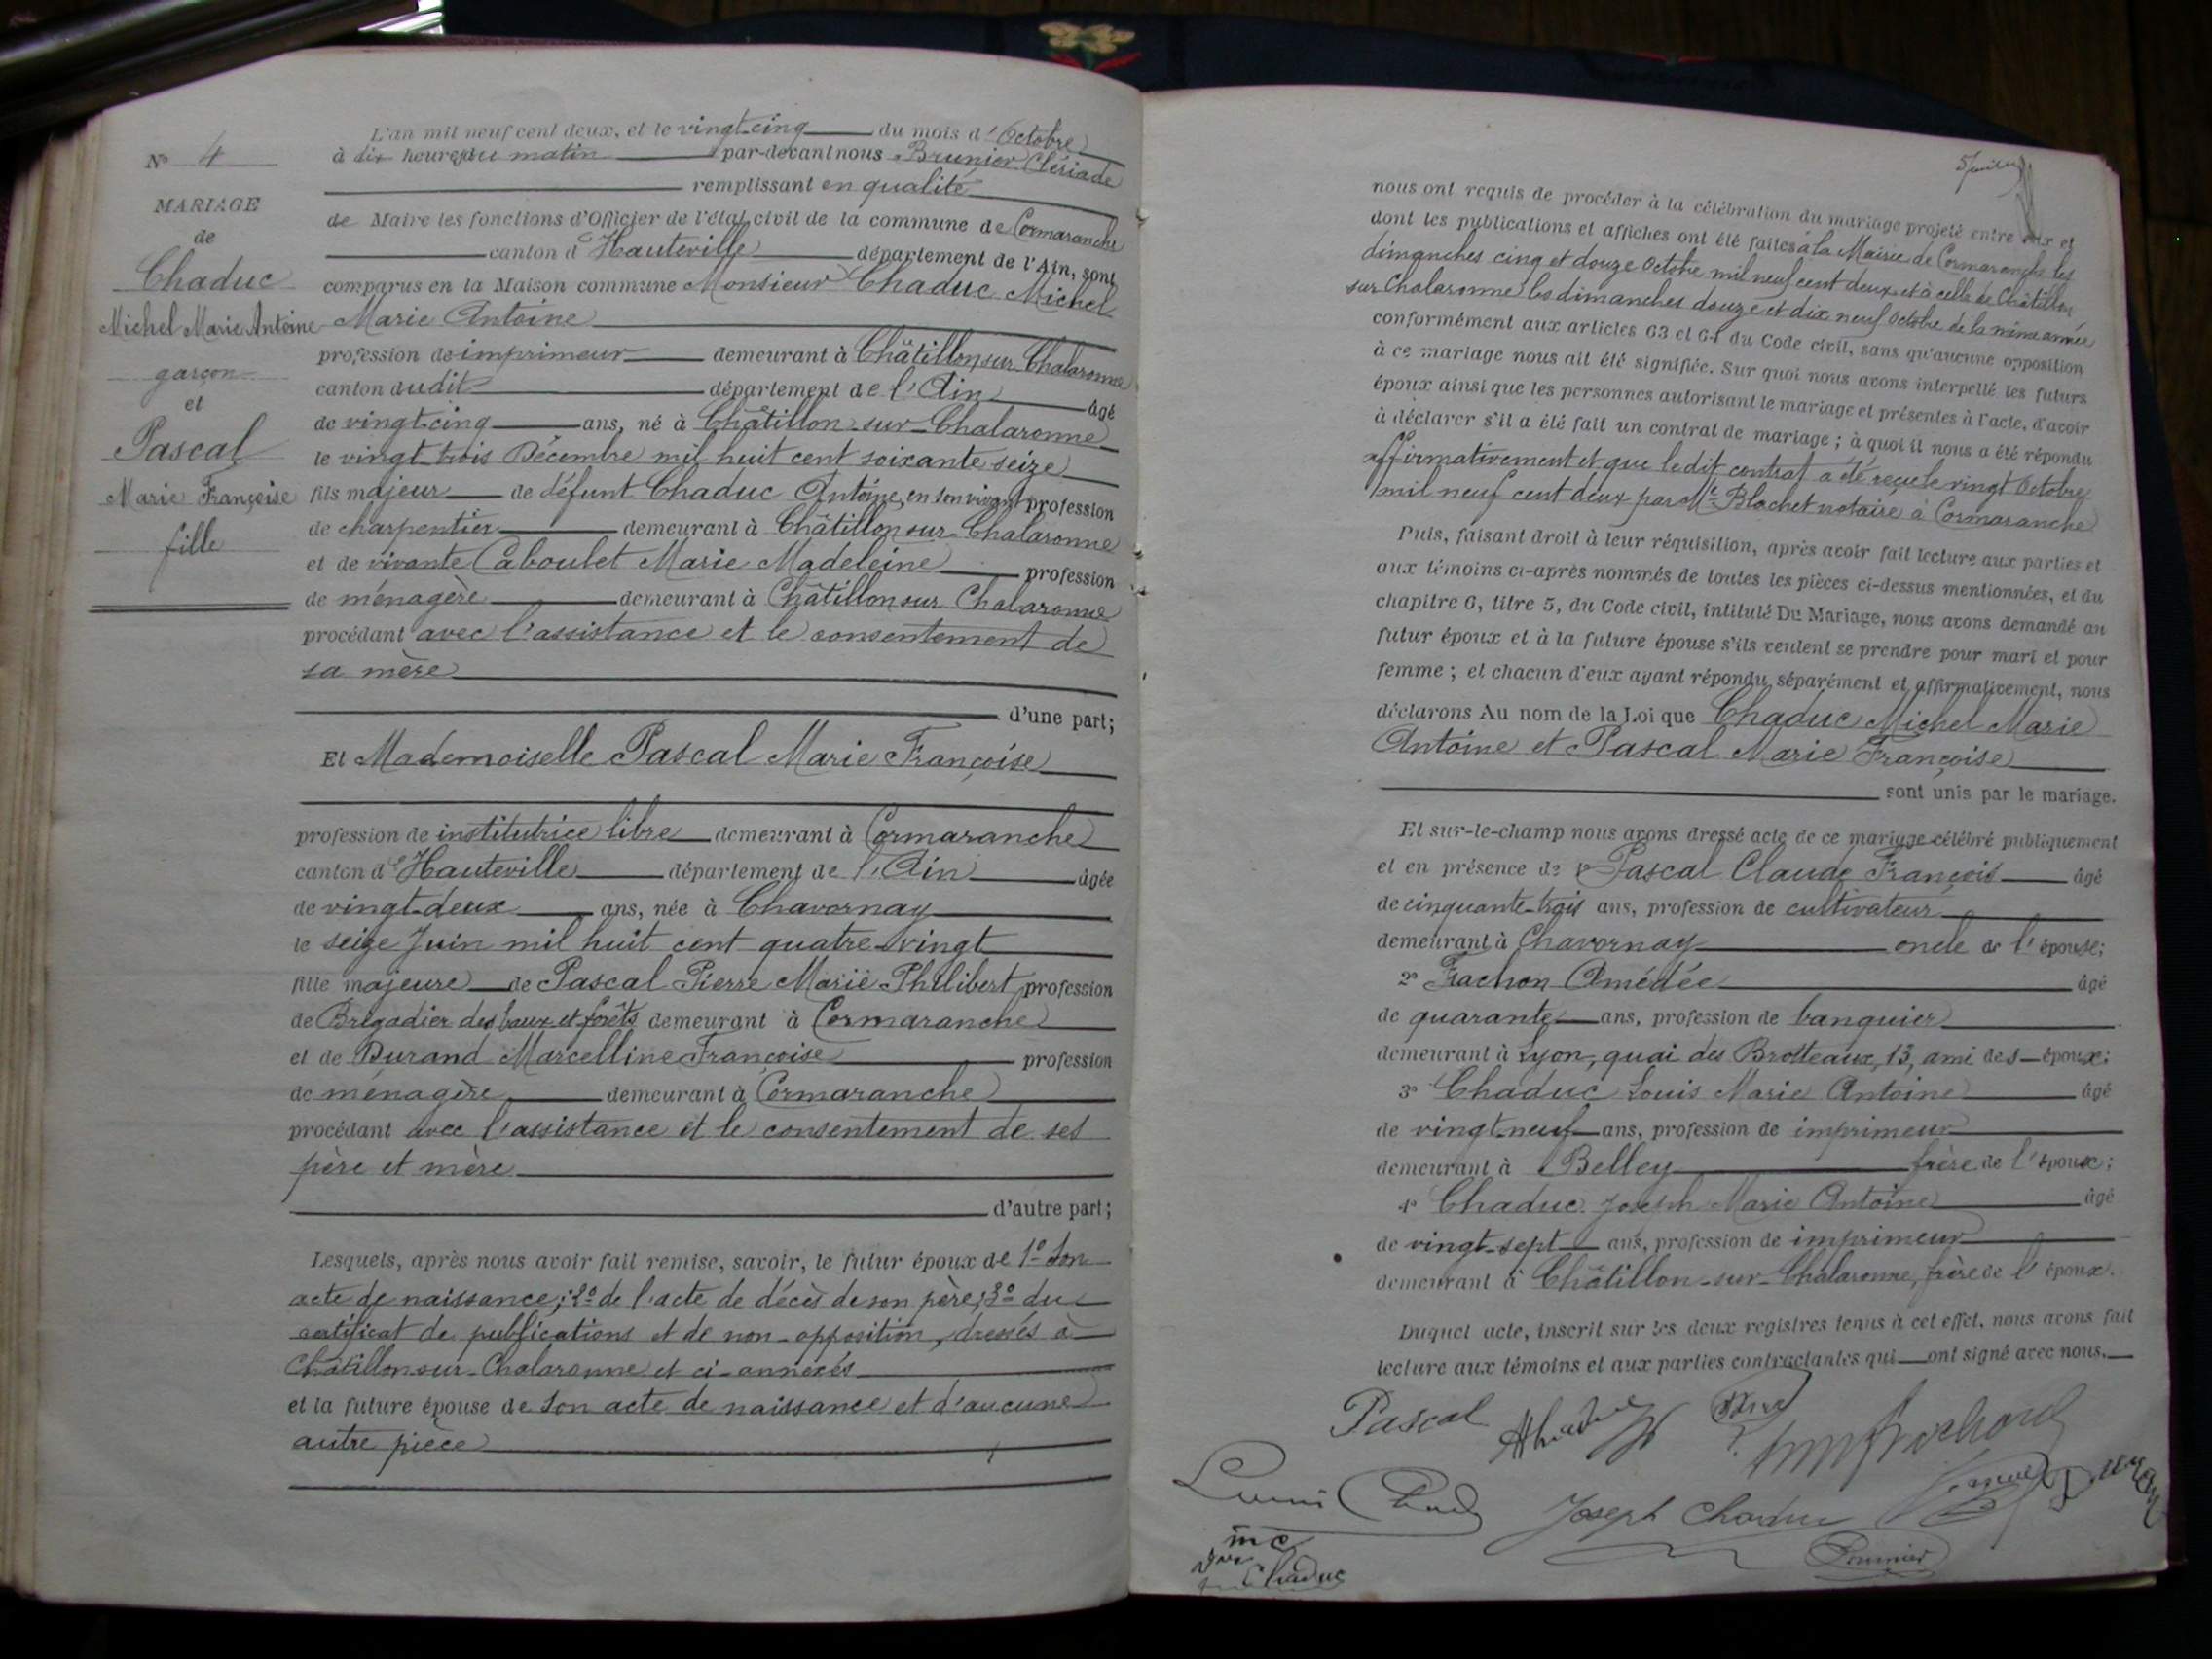 N° 4
MARIAGE
de
Chaduc
Michel Marie Antoine
garçon
et
Pascal
Marie Françoise
fille
L'an mil neuf cent deux, et le vingt-cinq du mois d'Octobre
à dix heures du matin par-devant nous Brunier Clériade
remplissant en qualité
de Maire les fonctions d'Officier de l'état civil de la commune de Cormaranche
canton d'Hauteville département de l'Ain, sont
comparus en la Maison commune Monsieur Chaduc Michel
Marie Antoine
profession de imprimeur demeurant à Châtillon sur Chalaronne
canton dudit département de l'Ain âgé
de vingt-cinq ans, né à Châtillon-sur-Chalaronne
le vingt-trois Décembre mil huit cent soixante seize
fils majeur de défunt Chaduc Antoine, en son vivant profession
de charpentier demeurant à Châtillon sur-Chalaronne
et de vivante Caboulet Marie Madeleine profession
de ménagère demeurant à Châtillon sur Chalaronne
procédant avec l'assistance et le consentement de
sa mère
d'une part;
Et Mademoiselle Pascal Marie Françoise
profession de institutrice libre demeurant à Cormaranche
canton d'Hauteville département de l'Ain âgée
de vingt-deux ans, née à Chavornay
le seize Juin mil huit cent quatre-vingt
fille majeure de Pascal Pierre Marie Philibert profession
de Brigadier des Eaux et forêts demeurant à Cormaranche
et de Durand Marcelline Françoise profession
de ménagère demeurant à Cormaranche
procédant avec l'assistance et le consentement de ses
père et mère
d'autre part;
Lesquels, après nous avoir fait remise, savoir, le futur époux de 1° Son
acte de naissance; 2° de l'acte de décès de son père; 3° du
certificat de publications et de non-opposition, dressés à
Châtillon-sur-Chalaronne et ci-annexés
et la future épouse de Son acte de naissance et d'aucune
autre pièce
nous ont requis de procéder à la célébration du mariage projeté entre eux et
dont les publications et affiches ont été faites à la Mairie de Cormaranche les
dimanches cinq et douze Octobre mil neuf cent deux et à celle de Châtillon
sur Chalaronne les dimanches douze et dix neuf Octobre de la même année
conformément aux articles 63 et 64 du Code civil, sans qu'aucune opposition
à ce mariage nous ait été signifiée. Sur quoi nous avons interpellé les futurs
époux ainsi que les personnes autorisant le mariage et présentes à l'acte, d'avoir
à déclarer s'il a été fait un contrat de mariage; à quoi il nous a été répondu
affirmativement et que ledit contrat a été reçu le vingt Octobre
mil neuf cent deux par Me Blachet notaire à Cormaranche
Puis, faisant droit à leur réquisition, après avoir fait lecture aux parties et
aux témoins ci-après nommés de toutes les pièces ci-dessus mentionnées, et du
chapitre 6, titre 5, du Code civil, intitulé Du Mariage, nous avons demandé au
futur époux et à la future épouse s'ils veulent se prendre pour mari et pour
femme; et chacun d'eux ayant répondu séparément et affirmativement, nous
déclarons Au nom de la Loi que Chaduc Michel Marie
Antoine et Pascal Marie Françoise
sont unis par le mariage.
Et sur-le-champ nous avons dressé acte de ce mariage célébré publiquement
et en présence de 1° Pascal Claude François âgé
de cinquante-trois ans, profession de cultivateur
demeurant à Chavornay oncle de l'épouse;
2° Frachon Amédée âgé
de quarante ans, profession de banquier
demeurant à Lyon, quai des Brotteaux, 13, ami des époux;
3° Chaduc Louis Marie Antoine âgé
de vingt-neuf ans, profession de imprimeur
demeurant à Belley frère de l'époux;
4° Chaduc Joseph Marie Antoine âgé
de vingt-sept ans, profession de imprimeur
demeurant à Châtillon-sur-Chalaronne, frère de l'époux.
Duquel acte, inscrit sur les deux registres tenus à cet effet, nous avons fait
lecture aux témoins et aux parties contractantes qui ont signé avec nous.
Pascal
Joseph Chaduc
Chaduc
Brunier